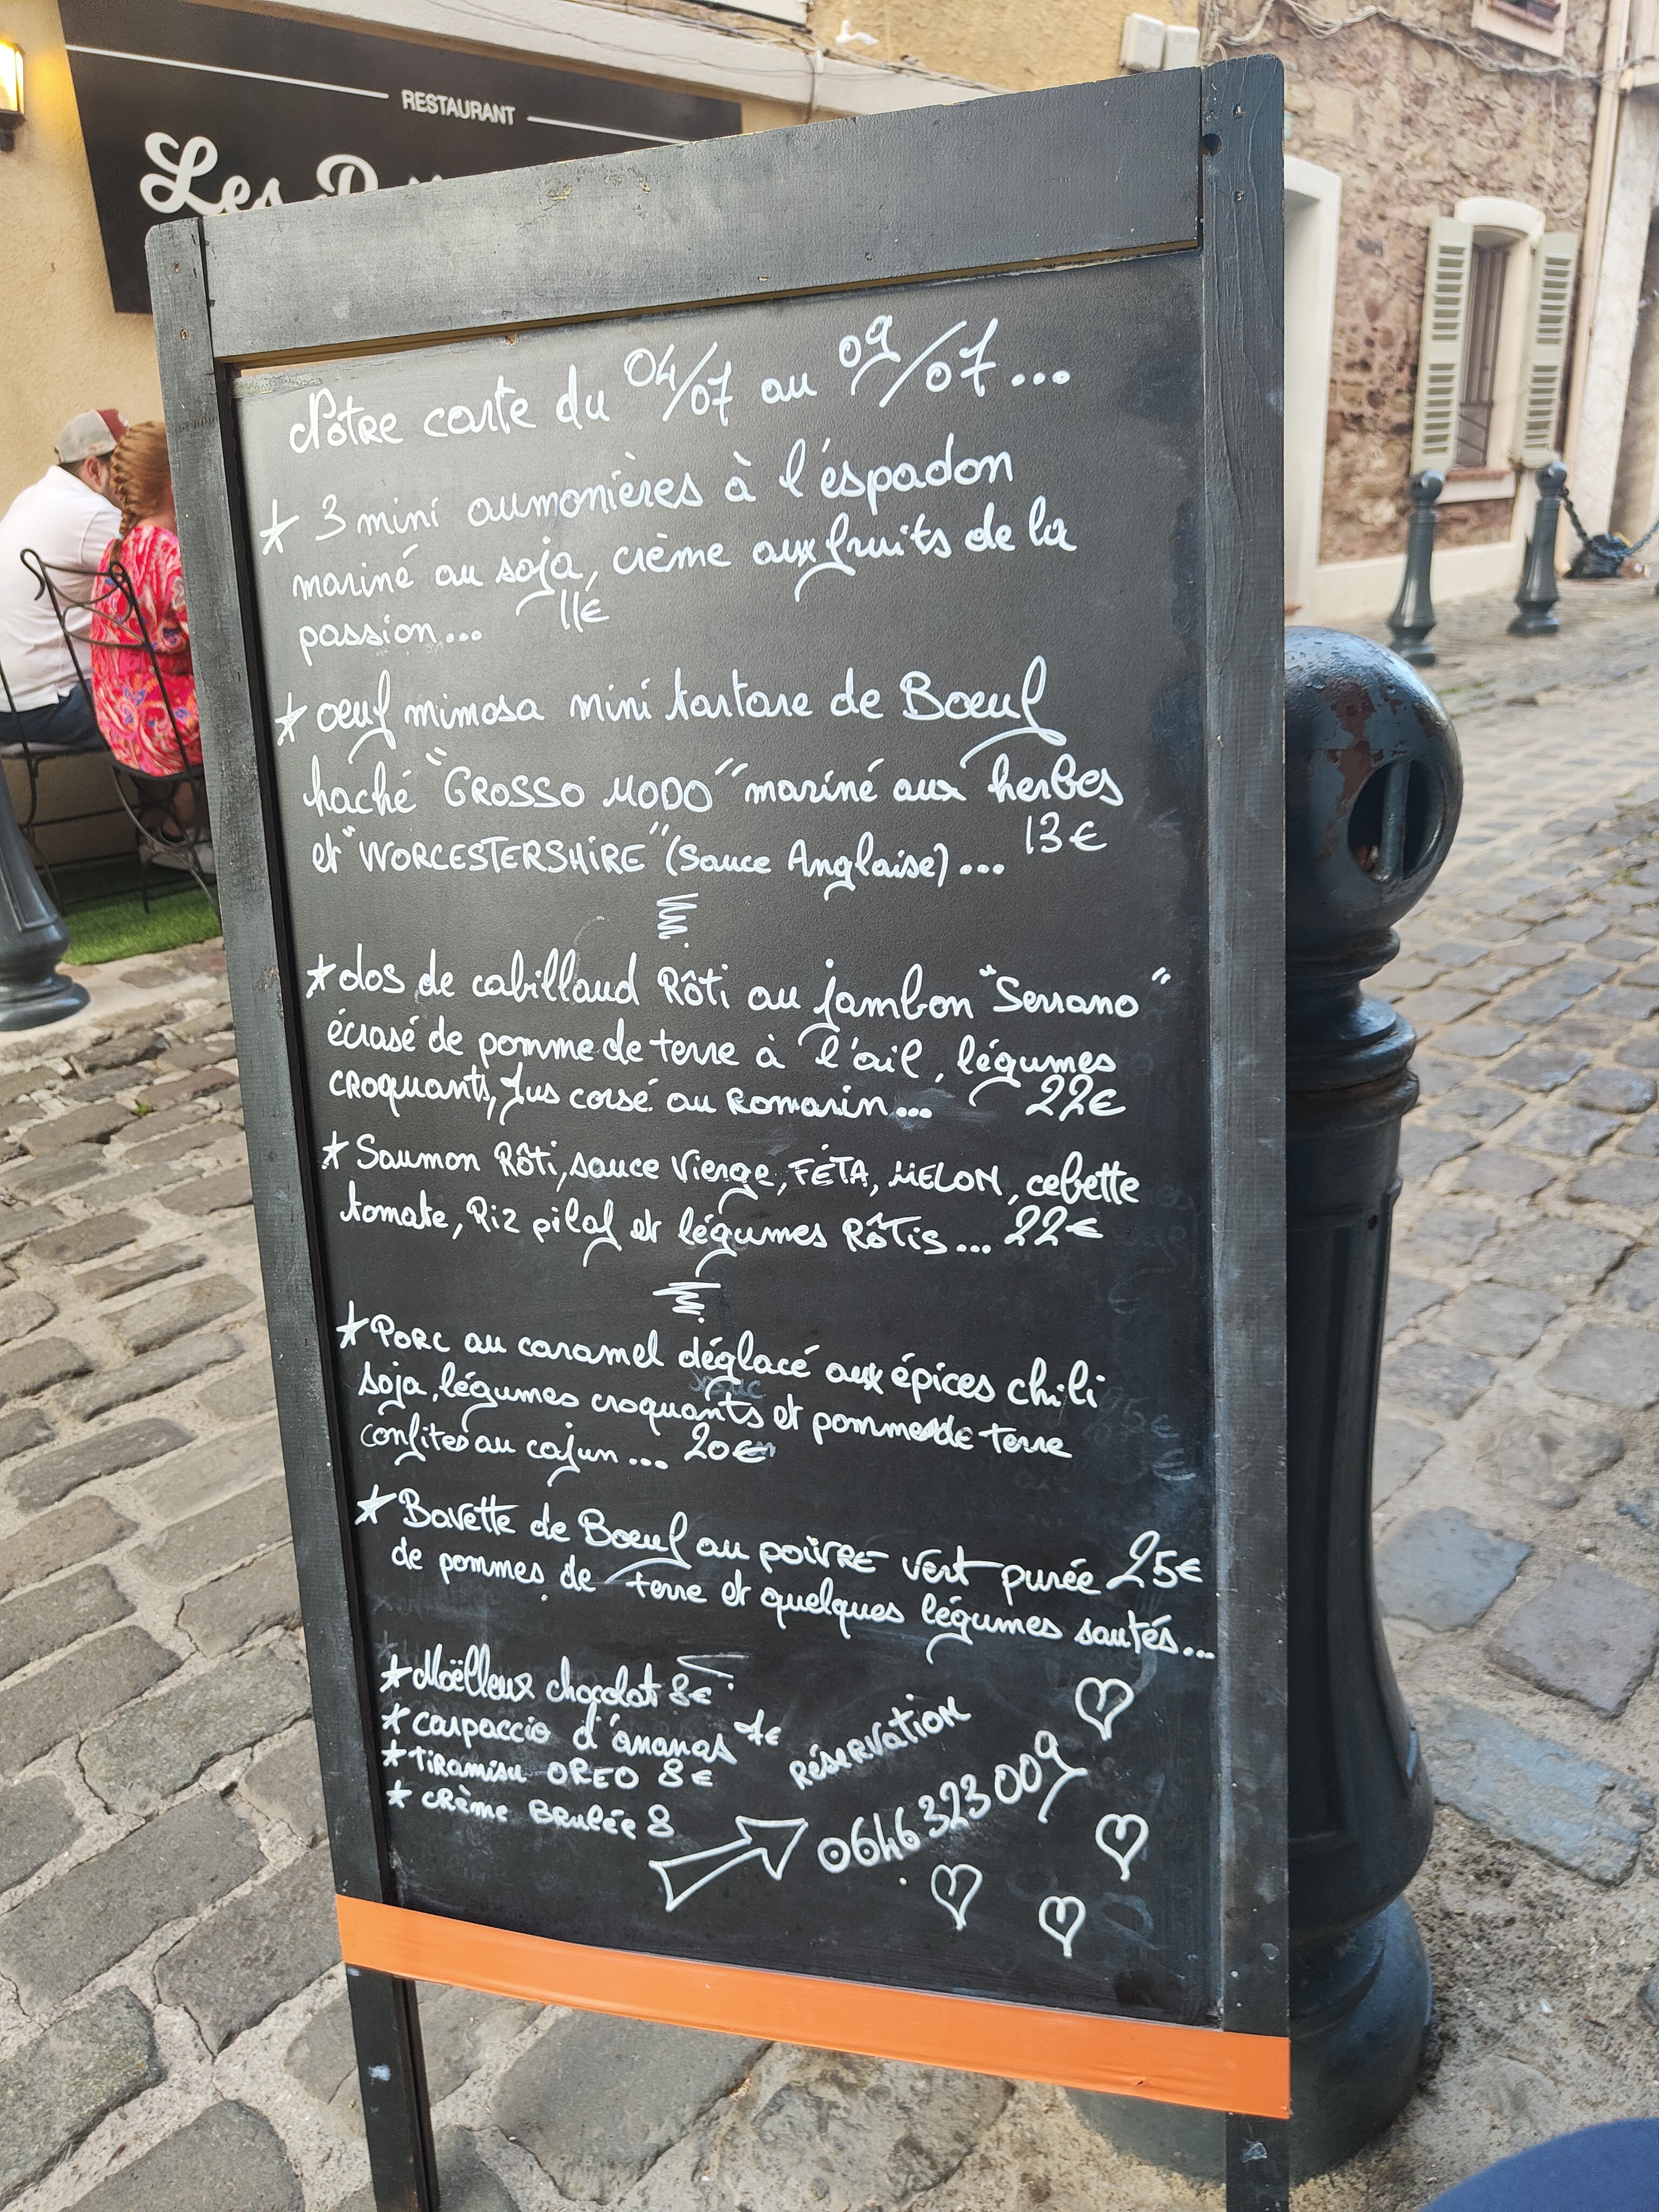 RESTAURANT
Les
Nôtre carte du 04/07 au 09/07...
* 3 mini aumonières à l'éspadon
mariné au soja, crème aux fruits de la
passion... 11€
* oeuf mimosa mini tartare de Boeuf
haché "GROSSO MODO" mariné aux herbes
et "WORCESTERSHIRE" (Sauce Anglaise)... 13€
* dos de cabillaud Rôti au jambon "Serrano"
écrasé de pomme de terre à l'ail, légumes
croquants, Jus corsé au Romarin... 22€
* Saumon Rôti, sauce Vierge, FÉTA, MELON, cebette
tomate, Riz pilaf et légumes Rôtis... 22€
* Porc au caramel déglacé aux épices chili
soja, légumes croquants et pommes de terre
confites au cajun... 20€
* Bavette de Boeuf au poivre vert purée 25€
de pommes de terre et quelques légumes sautés...
* Moëlleux chocolat 8€
* carpaccio d'ananas
* tiramisu OREO 8€
* crème Brulée 8
RéseRVation
0646323009